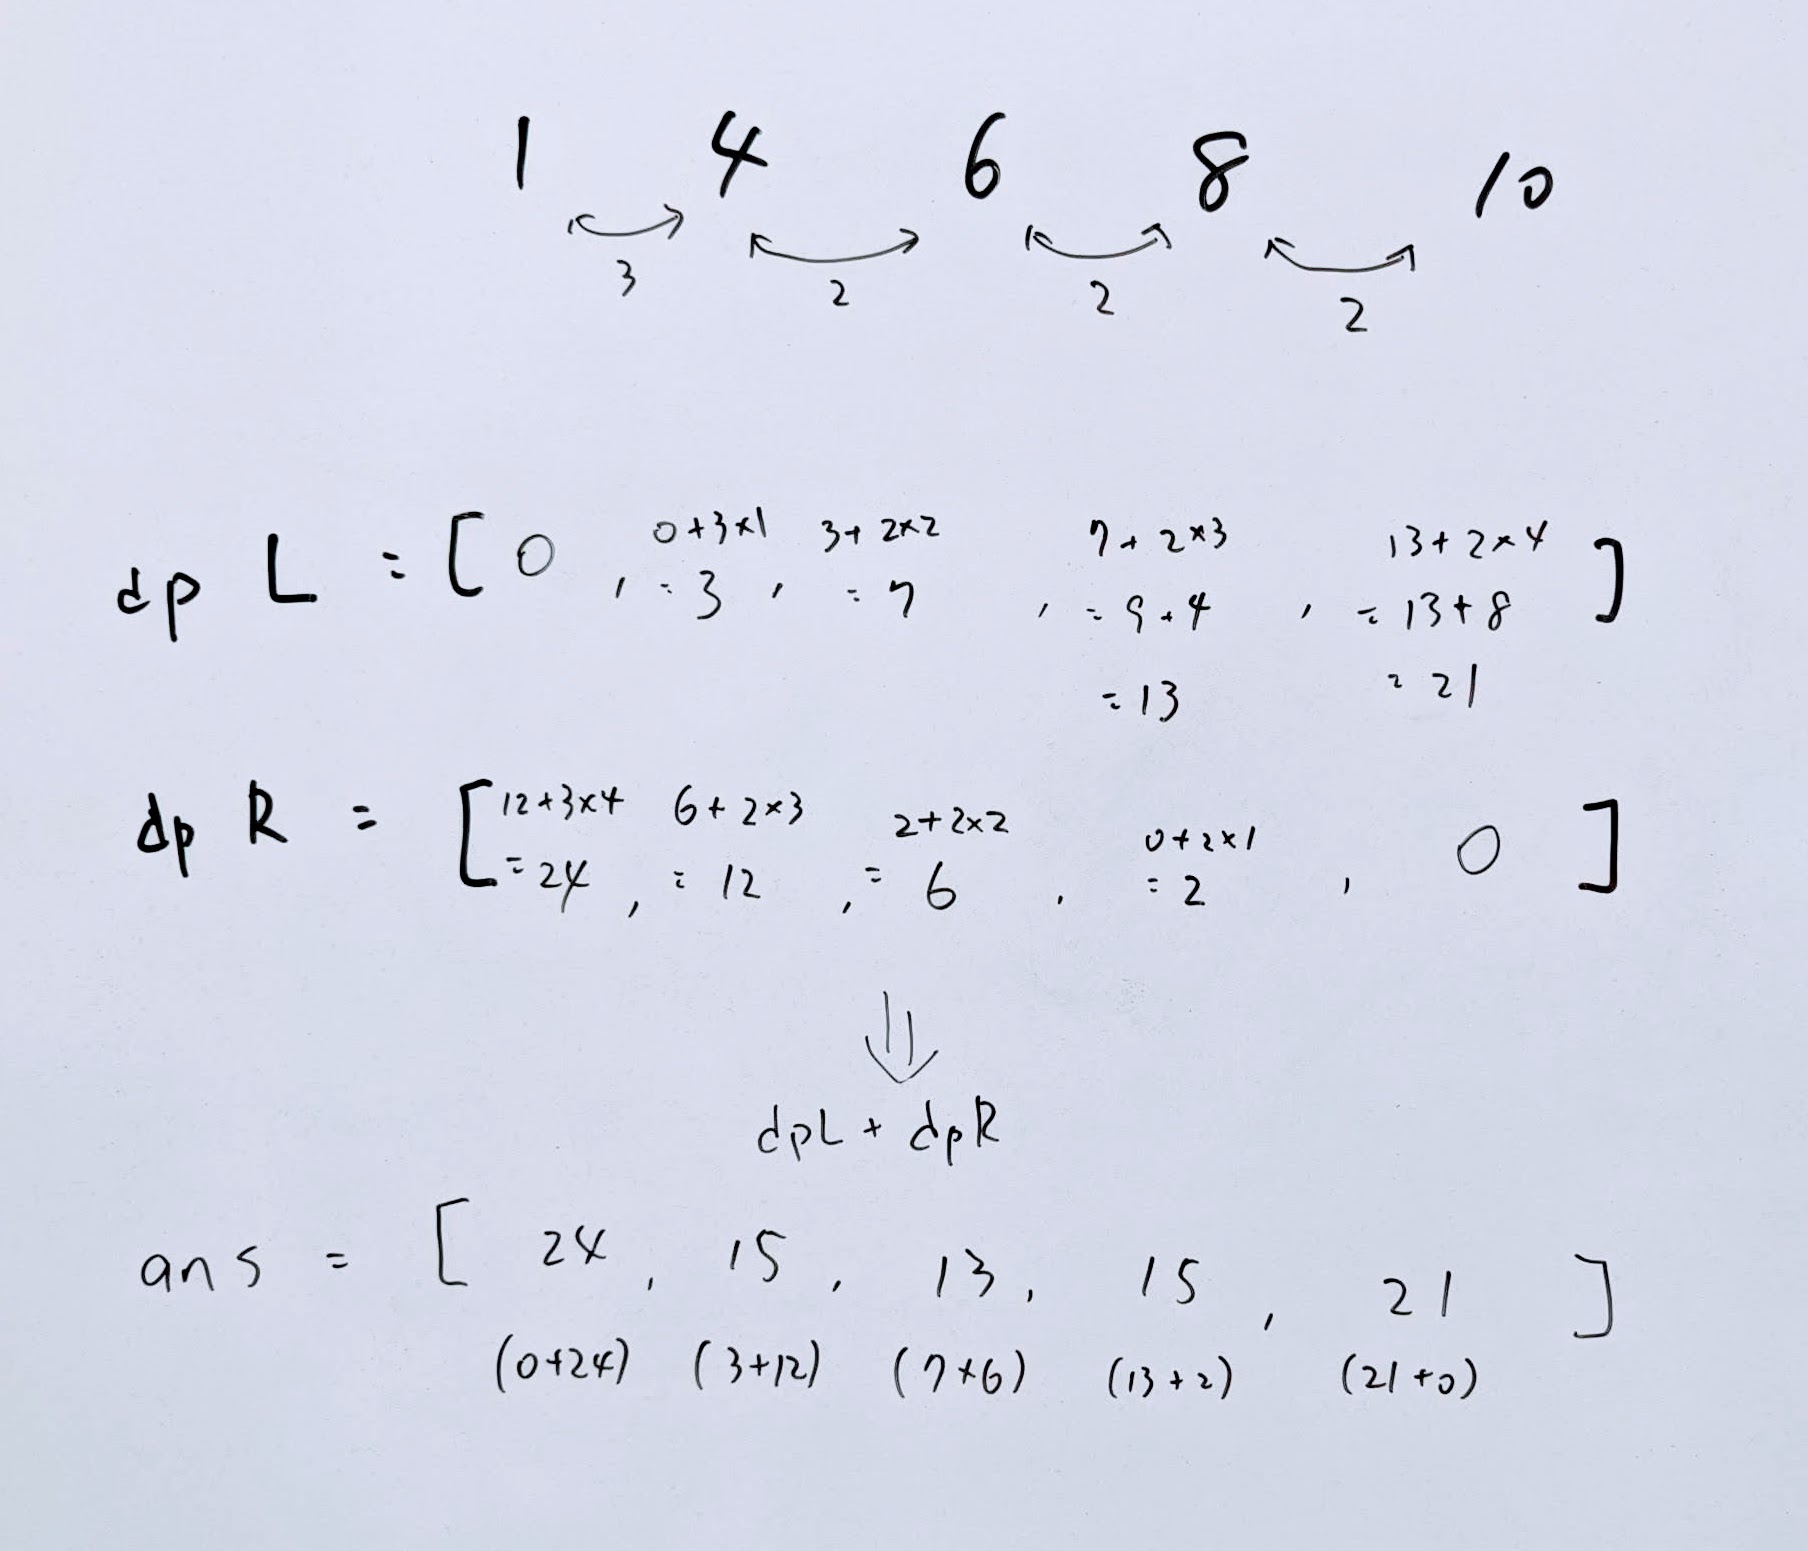 1 4 6 8 10
3 2 2 2
dp L = [ 0 , 0+3×1 = 3 , 3+2×2 = 7 , 7+2×3 = 9+4 = 13 , 13+2×4 = 13+8 = 21 ]
dp R = [ 12+3×4 = 24 , 6+2×3 = 12 , 2+2×2 = 6 , 0+2×1 = 2 , 0 ]
⇓
dpL + dpR
ans = [ 24 , 15 , 13 , 15 , 21 ]
(0+24) (3+12) (7+6) (13+2) (21+0)